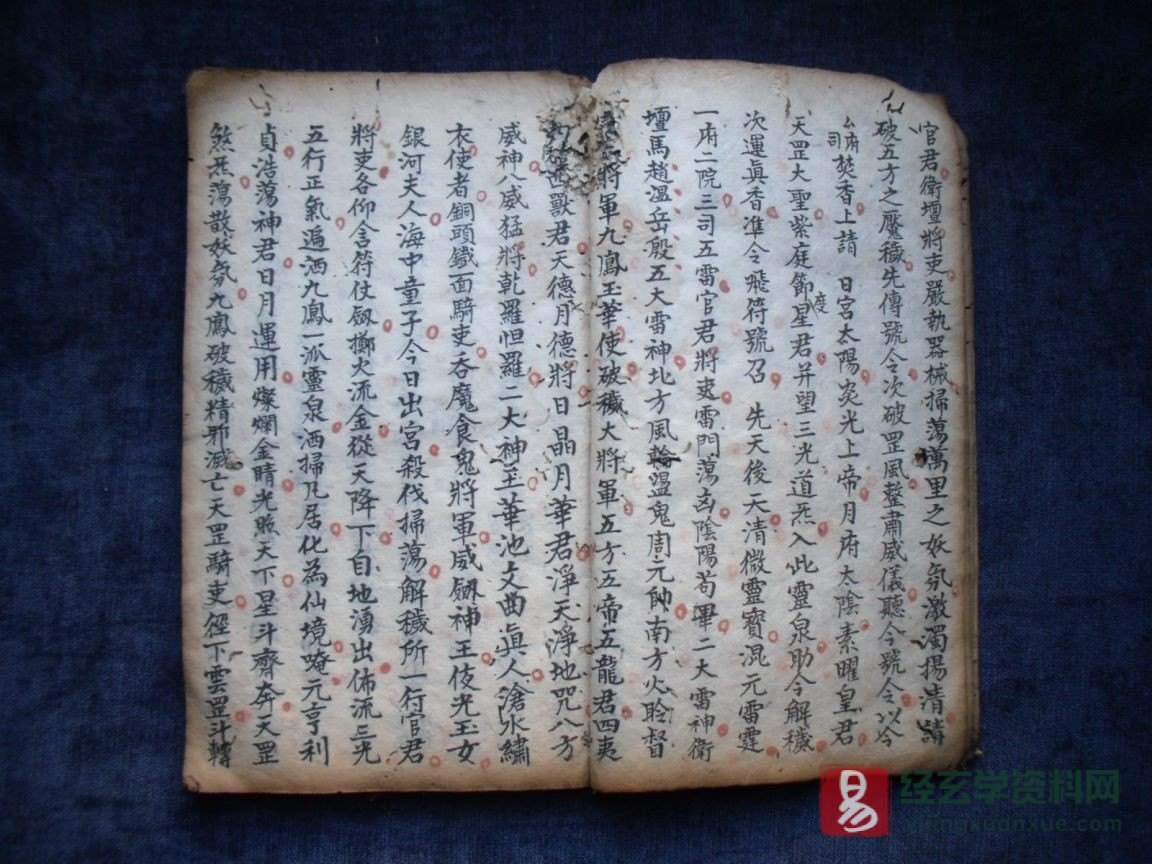 官君衛壇將吏嚴執器械掃蕩萬里之妖氛激濁揚清請
破五方之魘穢先傳號令次破罡風整肅威儀聽令號令以今
厶府司焚香上請 日宮太陽炎光上帝月府太陰素曜皇君
天罡大聖紫庭節度星君并望三光道炁入此靈泉助令解穢
次運眞香準令飛符號召 先天後天清微靈寳混元雷霆
一府二院三司五雷官君將吏雷門蕩凶陰陽苟畢二大雷神衛
壇馬趙溫岳殷五大雷神北方風輪溫鬼周元帥南方火聆督
將軍九鳳玉華使破穢大將軍五方五帝五龍君四夷
獸君天德月德將日晶月華君淨天淨地咒八方
威神八威猛將乾羅怛羅二大神玉華池文曲眞人滄水繡
衣使者銅頭鐵面騎吏吞魔食鬼將軍威劔神王伎光玉女
銀河夫人海中童子今日出宮殺伐掃蕩解穢所一行官君
將吏各仰含符仗劔擲火流金從天降下自地湧出佈流三光
五行正氣遍洒九鳳一派靈泉洒掃凡居化為仙境唵元亨利
貞浩蕩神君日月運用燦爛金晴光照天下星斗齊奔天罡
煞炁蕩散妖氛九鳳破穢精邪滅亡天罡騎吏徑下雲罡斗轉
易
经玄学资料网
yijingxuanxue.com